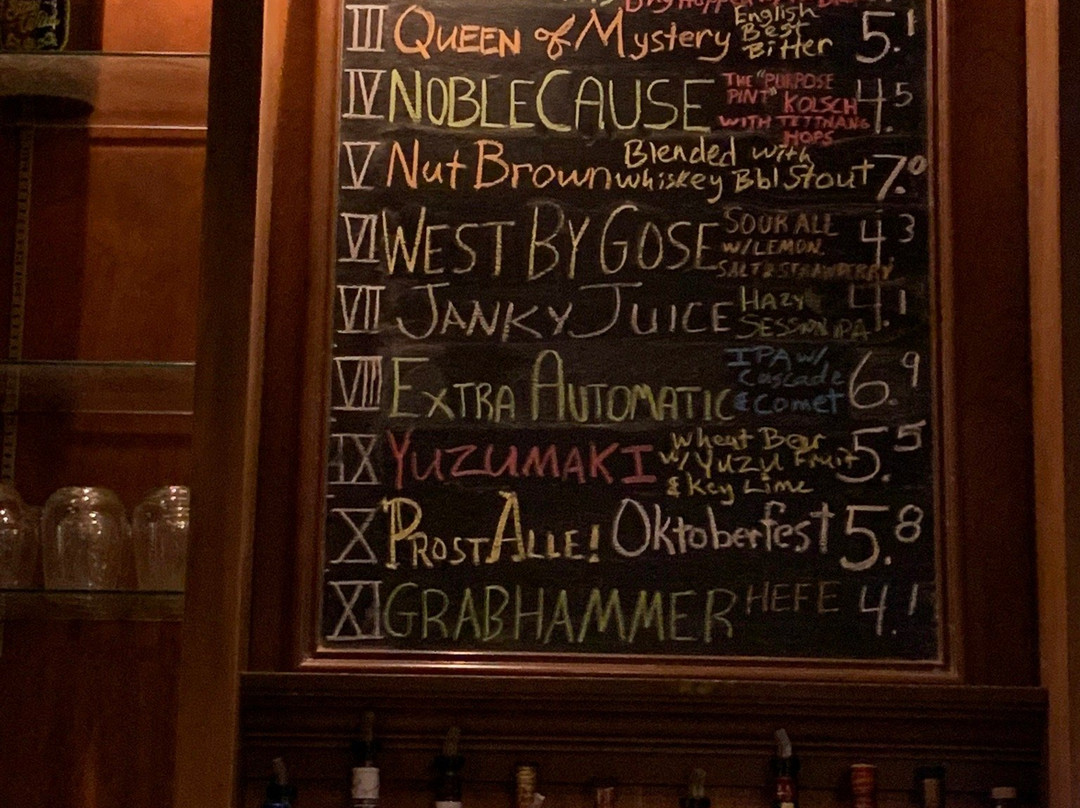 III Queen of Mystery English Best Bitter 5.1
IV NOBLE CAUSE THE "PURPOSE PINT" KOLSCH WITH TETTNANG HOPS 4.5
V Nut Brown Blended with whiskey Bbl Stout 7.0
VI WEST BY GOSE SOUR ALE W/LEMON SALT & STRAWBERRY 4.3
VII JANKY JUICE HAZY SESSION IPA 4.1
VIII EXTRA AUTOMATIC IPA w/ Cascade & Comet 6.9
IX YUZUMAKI Wheat Beer w/ Yuzu Fruit & Key Lime 5.5
X PROST ALLE! Oktoberfest 5.8
XI GRABHAMMER HEFE 4.1